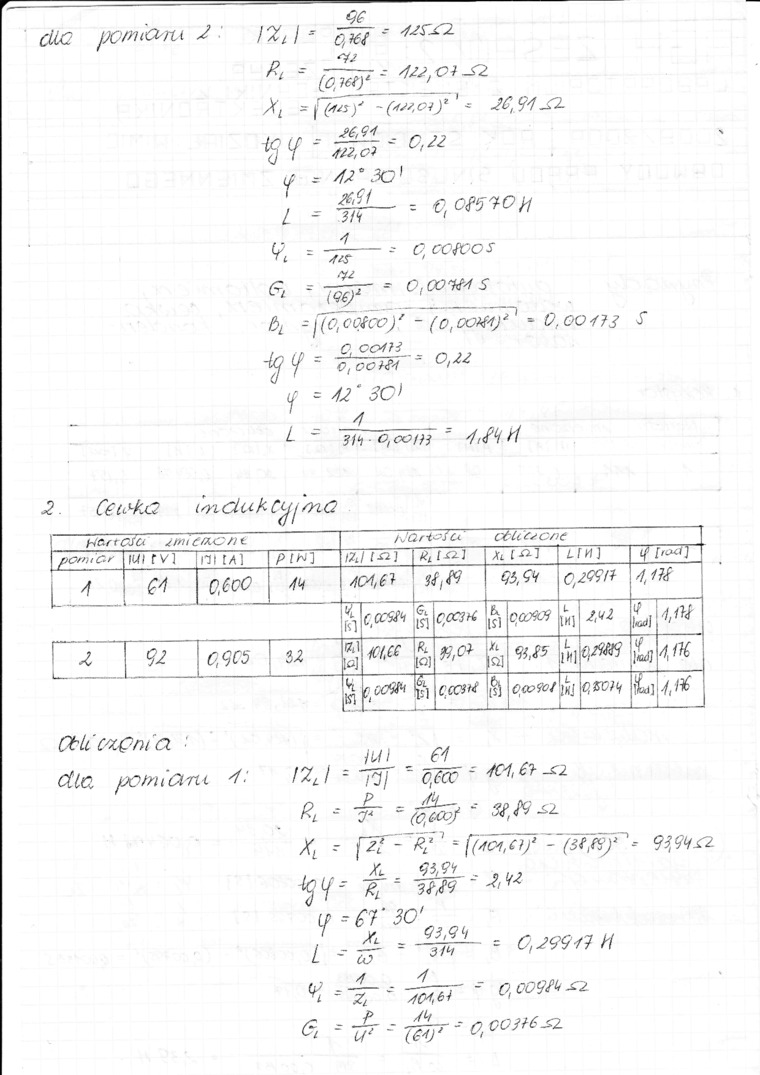 dla pomiaru 2: |ZL| = 96/0,768 = 125Ω
RL = 72/(0,768)² = 122,07 Ω
XL = √((125)² - (122,07)²) = 26,91 Ω
tg φ = 26,91/122,07 = 0,22
φ = 12° 30'
L = 26,91/314 = 0,08570 H
YL = 1/125 = 0,00800 S
GL = 72/(96)² = 0,00781 S
BL = √((0,00800)² - (0,00781)²) = 0,00173 S
tg φ = 0,00173/0,00781 = 0,22
φ = 12° 30'
L = 1/(314·0,00173) = 1,84 H
2. Cewka indukcyjna
Wartości zmierzone Wartości obliczone
pomiar |U| [V] |J| [A] P [W] |ZL| [Ω] RL [Ω] XL [Ω] L [H] φ [rad]
1 61 0,600 14 101,67 38,89 93,94 0,29917 1,178
YL [S] 0,00984 GL [S] 0,00376 BL [S] 0,00909 L [H] 2,42 φ [rad] 1,178
2 92 0,905 32 |ZL| [Ω] 101,66 RL [Ω] 39,07 XL [Ω] 93,85 L [H] 0,29889 φ [rad] 1,176
YL [S] 0,00984 GL [S] 0,00378 BL [S] 0,00908 L [H] 0,35074 φ [rad] 1,176
Obliczenia:
dla pomiaru 1: |ZL| = |U|/|J| = 61/0,600 = 101,67 Ω
RL = P/J² = 14/(0,600)² = 38,89 Ω
XL = √(ZL² - RL²) = √((101,67)² - (38,89)²) = 93,94 Ω
tg φ = XL/RL = 93,94/38,89 = 2,42
φ = 67° 30'
L = XL/ω = 93,94/314 = 0,29917 H
YL = 1/ZL = 1/101,67 = 0,00984 Ω
GL = P/U² = 14/(61)² = 0,00376 Ω